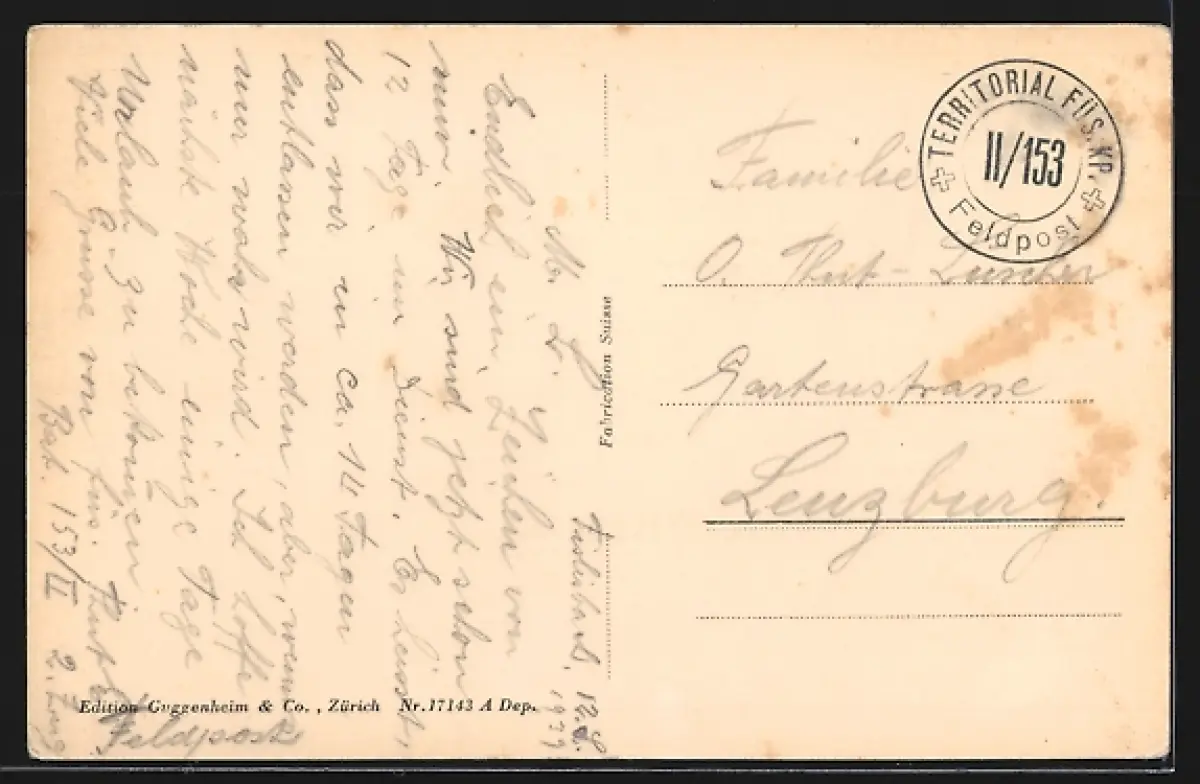 Fislisbach, 12.
1939
M. L.
Endlich ein Zeichen von
mir. Wir sind jetzt schon
12 Tage im Dienst. Es heisst,
dass wir in ca. 14 Tagen
entlassen werden, aber, wenns
nur wahr wird. Ich hoffe
nächste Woche einige Tage
Urlaub zu bekommen.
Viele Grüsse von Füs.
Bat. 153/II 2. Zug
Feldpost
Fabrication Suisse
Edition Guggenheim & Co., Zürich Nr. 17143 A Dep.
TERRITORIAL FÜS. KP.
II/153
Feldpost
Familie
O. Lüscher
Gartenstrasse
Lenzburg.